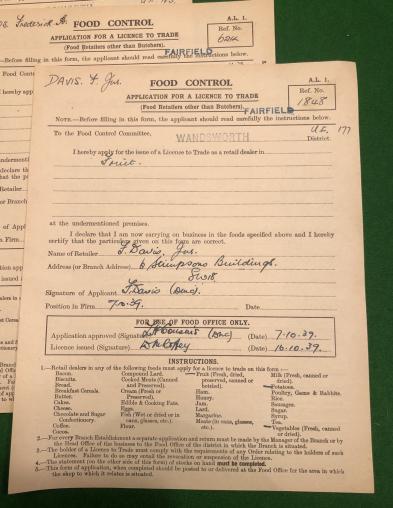 Frederick A.
FOOD CONTROL
A.L. 1.
APPLICATION FOR A LICENCE TO TRADE
Ref. No.
(Food Retailers other than Butchers).
62K
FAIRFIELD
—Before filling in this form, the applicant should read carefully the instructions below.
DAVIS. F. Jnr.
FOOD CONTROL
A.L. 1.
APPLICATION FOR A LICENCE TO TRADE
Ref. No.
(Food Retailers other than Butchers).
1848
FAIRFIELD
NOTE.—Before filling in this form, the applicant should read carefully the instructions below.
177
To the Food Control Committee,
WANDSWORTH
District.
I hereby apply for the issue of a Licence to Trade as a retail dealer in
Fruit.
at the undermentioned premises.
I declare that I am now carrying on business in the foods specified above and I hereby
certify that the particulars given on this form are correct.
Name of Retailer Davis, Jnr.
Address (or Branch Address) 6 Stimpsons Buildings.
SW18.
Signature of Applicant Davis
Position in Firm 7.10.39. Date
FOR USE OF FOOD OFFICE ONLY.
Application approved (Signature) (Date) 7.10.39.
Licence issued (Signature) (Date) 16.10.39.
INSTRUCTIONS.
1.—Retail dealers in any of the following foods must apply for a licence to trade on this form :—
Bacon.
Biscuits.
Bread.
Breakfast Cereals.
Butter.
Cakes.
Cheese.
Chocolate and Sugar Confectionery.
Coffee.
Cocoa.
Compound Lard.
Cooked Meats (Canned and Preserved).
Cream (Fresh or Preserved).
Edible & Cooking Fats.
Eggs.
Fish (Wet or dried or in cans, glasses, etc.).
Flour.
Fruit (Fresh, canned, preserved, canned or bottled).
Ham.
Honey.
Jam.
Lard.
Margarine.
Meats (in cans, glasses, etc.).
Milk (Fresh, canned or dried).
Potatoes.
Poultry, Game & Rabbits.
Rice.
Sausages.
Sugar.
Syrup.
Tea.
Vegetables (Fresh, canned or dried).
2.—For every Branch Establishment a separate application and return must be made by the Manager of the Branch or by
the Head Office of the business to the Food Office of the district in which the Branch is situated.
3.—The holder of a Licence to Trade must comply with the requirements of any Order relating to the holders of such
Licences. Failure to do so may entail the revocation or suspension of the Licence.
4.—The statement (on the other side of this form) of stocks on hand must be completed.
5.—This form of application, when completed should be posted to or delivered at the Food Office for the area in which
the shop to which it relates is situated.